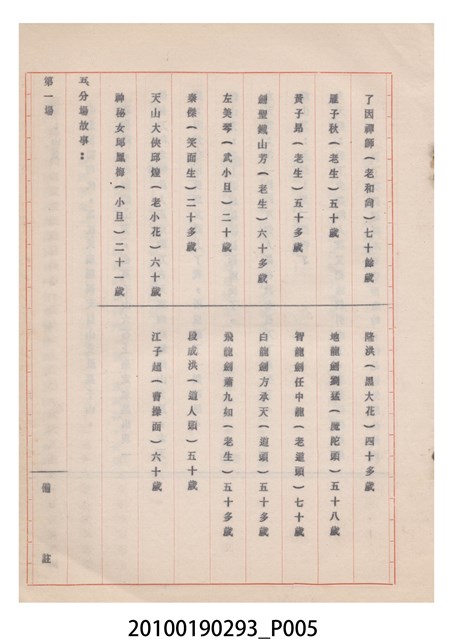 了因禪師（老和尚）七十餘歲
雁子秋（老生）五十歲
黃子昂（老生）五十多歲
劍聖鐵山芳（老生）六十多歲
左美琴（武小旦）二十歲
秦傑（笑面生）二十多歲
天山大俠邱煌（老小花）六十歲
神秘女郎鳳梅（小旦）二十一歲
隆洪（黑大花）四十多歲
地龍劍劉猛（陀頭）五十八歲
智龍劍任中龍（老道頭）七十歲
白龍劍方承天（道頭）五十多歲
飛龍劍蕭九如（老生）五十多歲
段成洪（道人頭）五十歲
江子超（曹操面）六十歲
五、分場故事：
第一場
備註
20100190293_P005